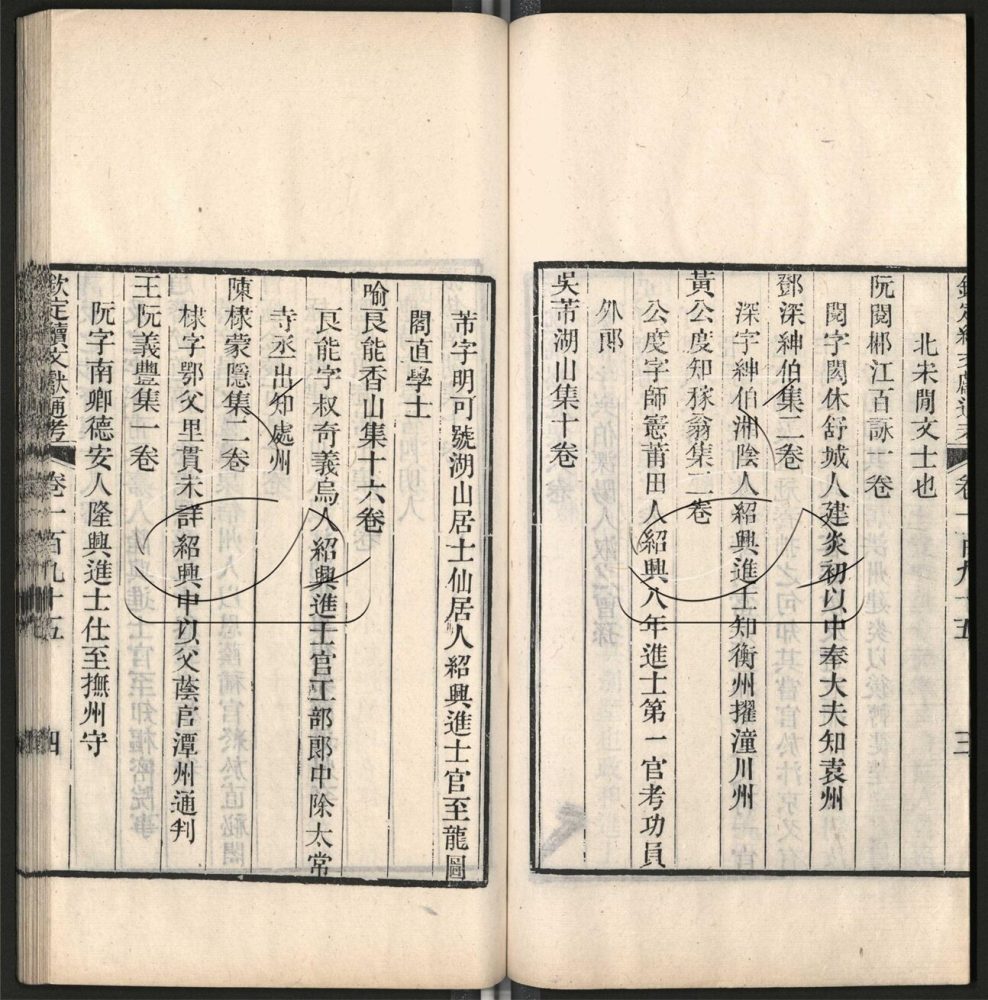 欽定續文獻通考 卷一百九十五 三
北宋閒文士也
阮閱郴江百詠一卷
閱字閎休舒城人建炎初以中奉大夫知袁州
鄧深紳伯集二卷
深字紳伯湘陰人紹興進士知衡州擢潼川州
黃公度知稼翁集二卷
公度字師憲莆田人紹興八年進士第一官考功員
外郎
吳芾湖山集十卷
芾字明可號湖山居士仙居人紹興進士官至龍圖
閣直學士
喻良能香山集十六卷
良能字叔奇義烏人紹興進士官工部郎中除太常
寺丞出知處州
陳棣蒙隱集二卷
棣字鄂父里貫未詳紹興中以父蔭官潭州通判
王阮義豐集一卷
阮字南卿德安人隆興進士仕至撫州守
欽定續文獻通考 卷一百九十五 四